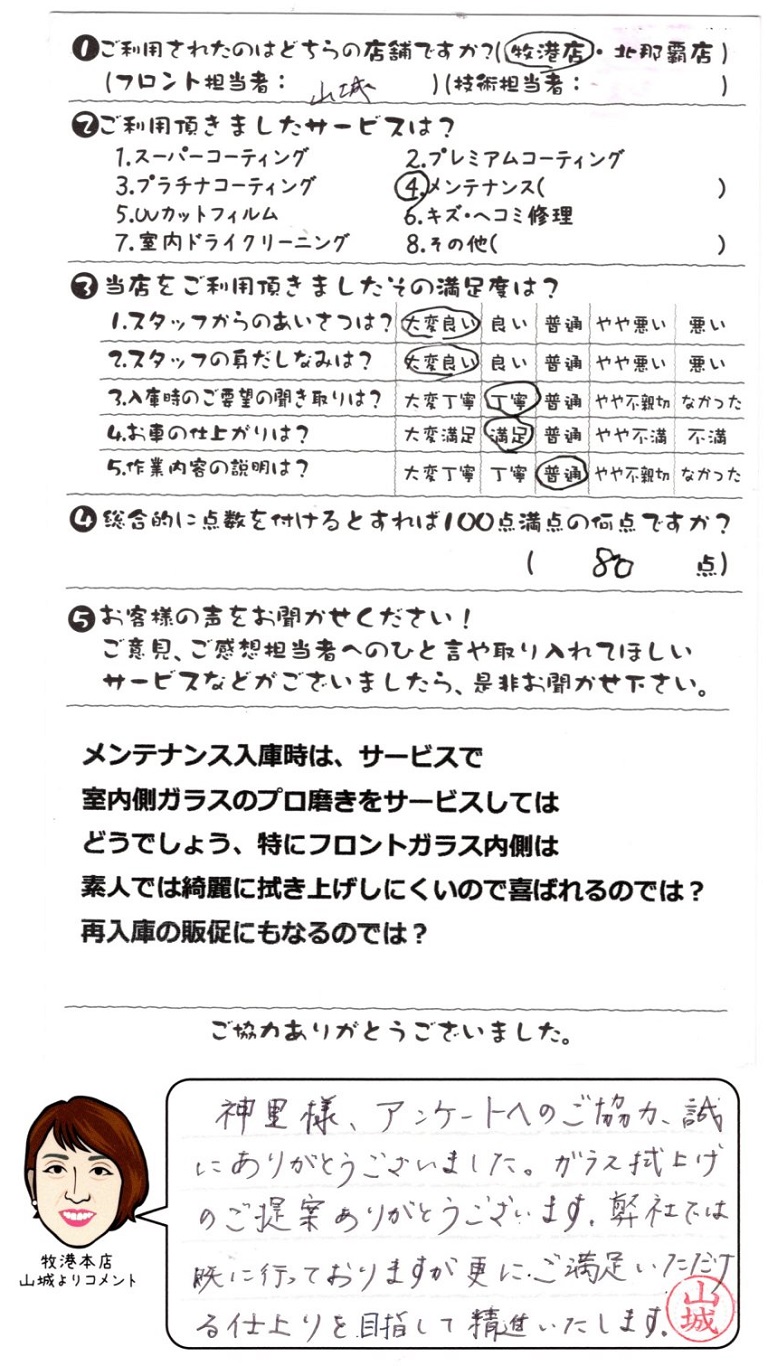 ❶ご利用されたのはどちらの店舗ですか?(牧港店・北那覇店)
(フロント担当者: 山城 )(技術担当者: )
❷ご利用頂きましたサービスは?
1.スーパーコーティング 2.プレミアムコーティング
3.プラチナコーティング 4.メンテナンス( )
5.UVカットフィルム 6.キズ・ヘコミ修理
7.室内ドライクリーニング 8.その他( )
❸当店をご利用頂きましたその満足度は?
1.スタッフからのあいさつは? 大変良い 良い 普通 やや悪い 悪い
2.スタッフの身だしなみは? 大変良い 良い 普通 やや悪い 悪い
3.入庫時のご要望の聞き取りは? 大変丁寧 丁寧 普通 やや不親切 なかった
4.お車の仕上がりは? 大変満足 満足 普通 やや不満 不満
5.作業内容の説明は? 大変丁寧 丁寧 普通 やや不親切 なかった
❹総合的に点数を付けるとすれば100点満点の何点ですか?
( 80 点)
❺お客様の声をお聞かせください!
ご意見、ご感想担当者へのひと言や取り入れてほしい
サービスなどがございましたら、是非お聞かせ下さい。
メンテナンス入庫時は、サービスで
室内側ガラスのプロ磨きをサービスしては
どうでしょう、特にフロントガラス内側は
素人では綺麗に拭き上げしにくいので喜ばれるのでは?
再入庫の販促にもなるのでは?
ご協力ありがとうございました。
神里様、アンケートへのご協力、誠
にありがとうございました。ガラス拭上げ
のご提案ありがとうございます。弊社では
既に行っておりますが更に、ご満足いただけ
る仕上りを目指して精進いたします。
山城
牧港本店
山城よりコメント